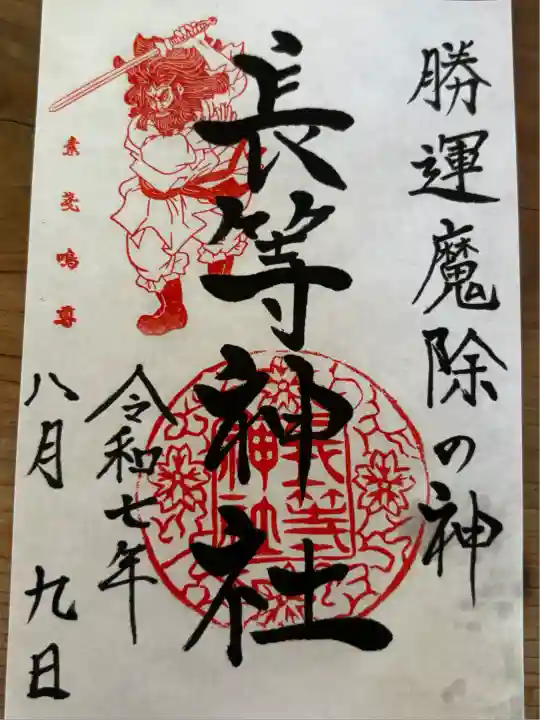 勝運魔除の神
長等神社
長等
神社
素戔嗚尊
令和七年
八月 九日